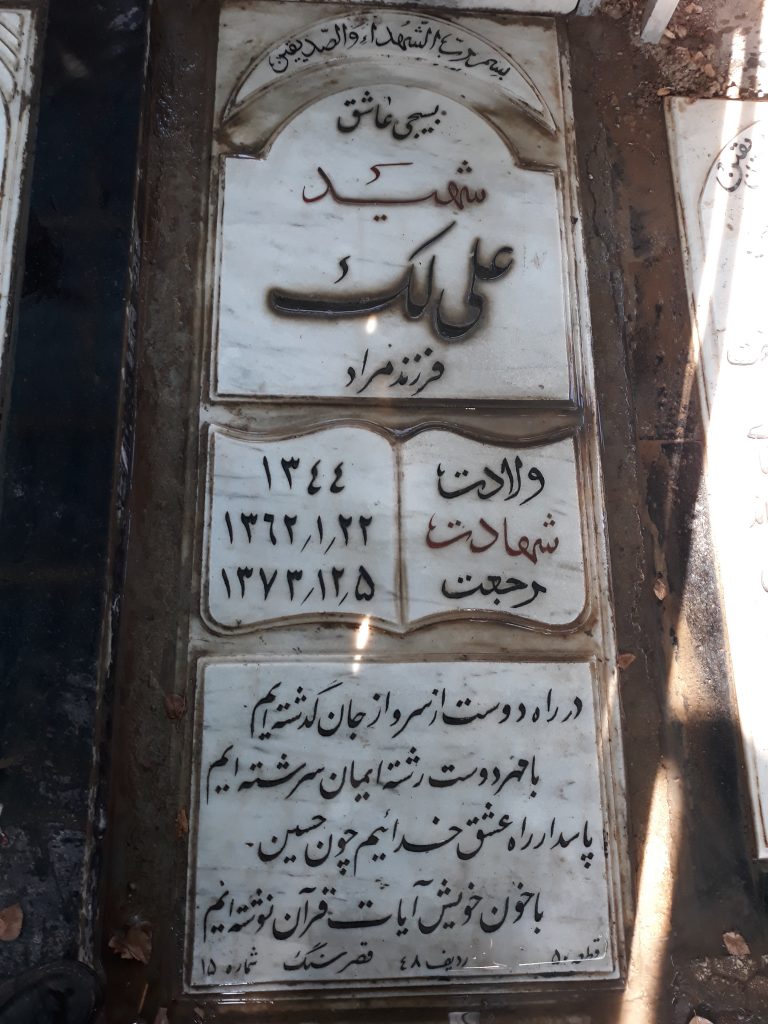 بسم رب الشهداء والصدیقین
بسیجی عاشق
شهید
علی لک
فرزند مراد
ولادت ۱۳۴۴
شهادت ۱۳۶۲٫۱٫۲۲
رجعت ۱۳۷۳٫۱۲٫۵
در راه دوست از سر و از جان گذشته ایم
با مهر دوست رشته ایمان سرشته ایم
پاسدار راه عشق خدائیم چون حسین
با خون خویش آیات قرآن نوشته ایم
قطعه ۵۰ ردیف ۴۸ قصر سنگ شماره ۱۵